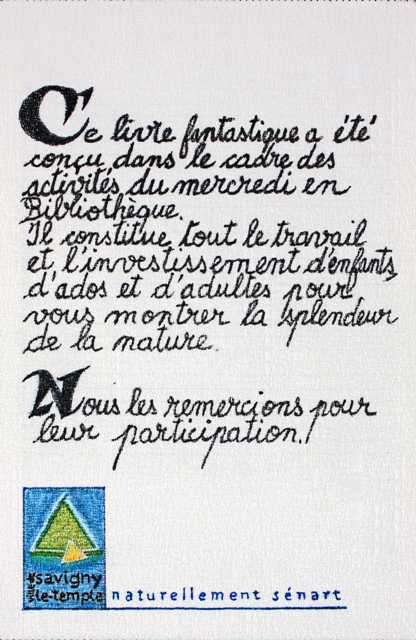 Ce livre fantastique a été
conçu dans le cadre des
activités du mercredi en
Bibliothèque.
Il constitue tout le travail
et l'investissement d'enfants,
d'ados et d'adultes pour
vous montrer la splendeur
de la nature.
Nous les remercions pour
leur participation.!
savigny
le-temple
naturellement sénart